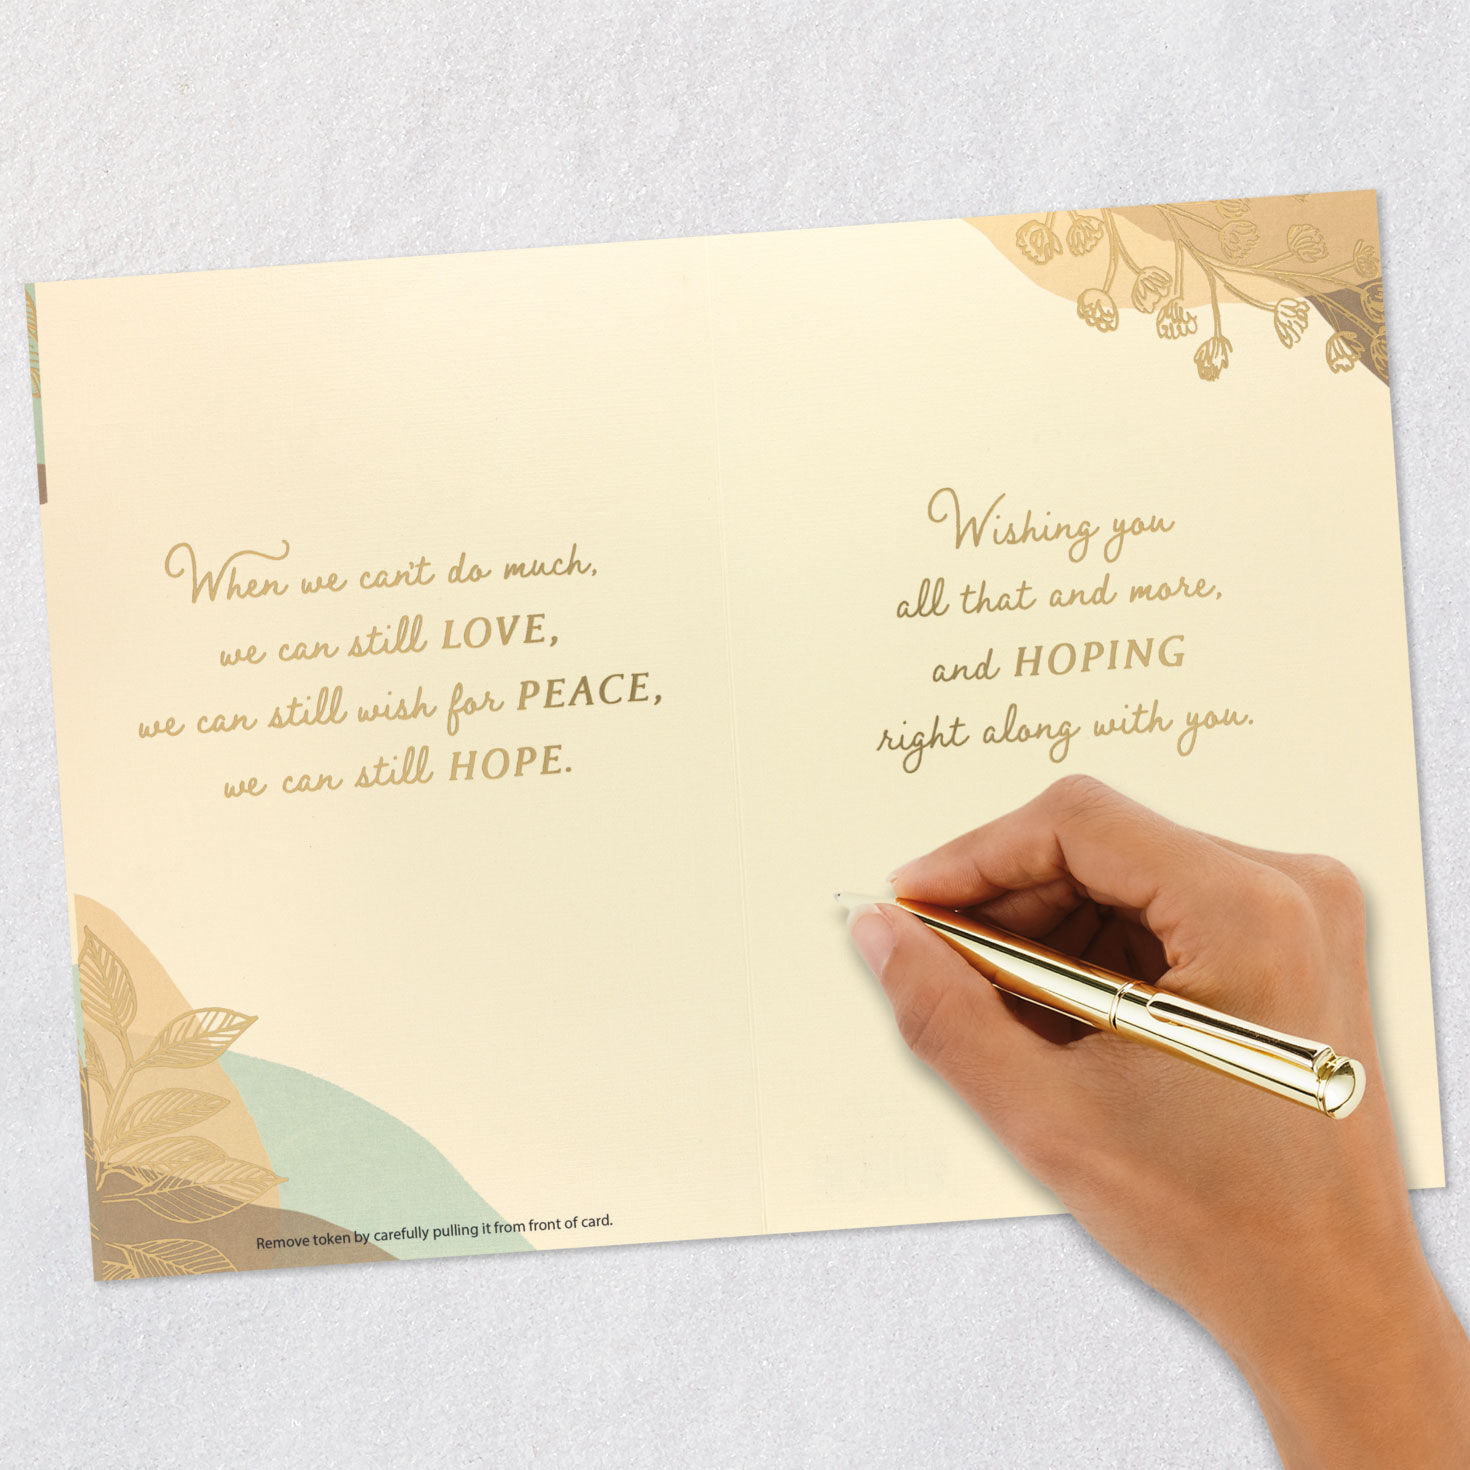 When we can't do much,
we can still LOVE,
we can still wish for PEACE,
we can still HOPE.
Remove token by carefully pulling it from front of card.
Wishing you
all that and more,
and HOPING
right along with you.